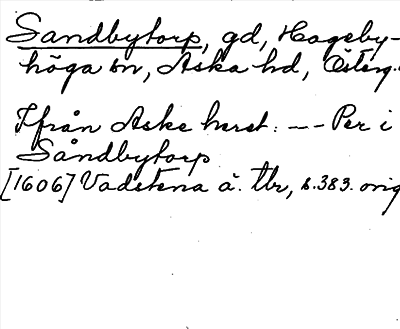 Sandbytorp, gd, Hageby-
höga sn, Aska hd, Österg.
Ifrån Aske heret: --- Per i
Såndbytorp
[1606] Vadstena ä. tbr, s. 383. orig